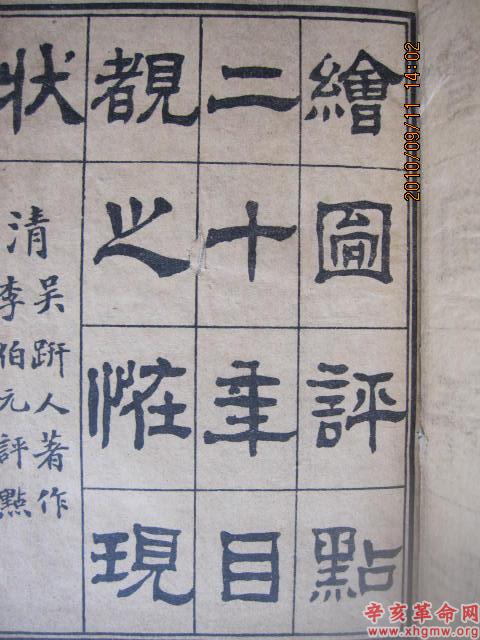 繪圖評點
二十年目
覩之恠現
狀
清
吳趼人著作
李伯元評點
2010/09/11 14:02
辛亥革命网
www.xhgmw.org